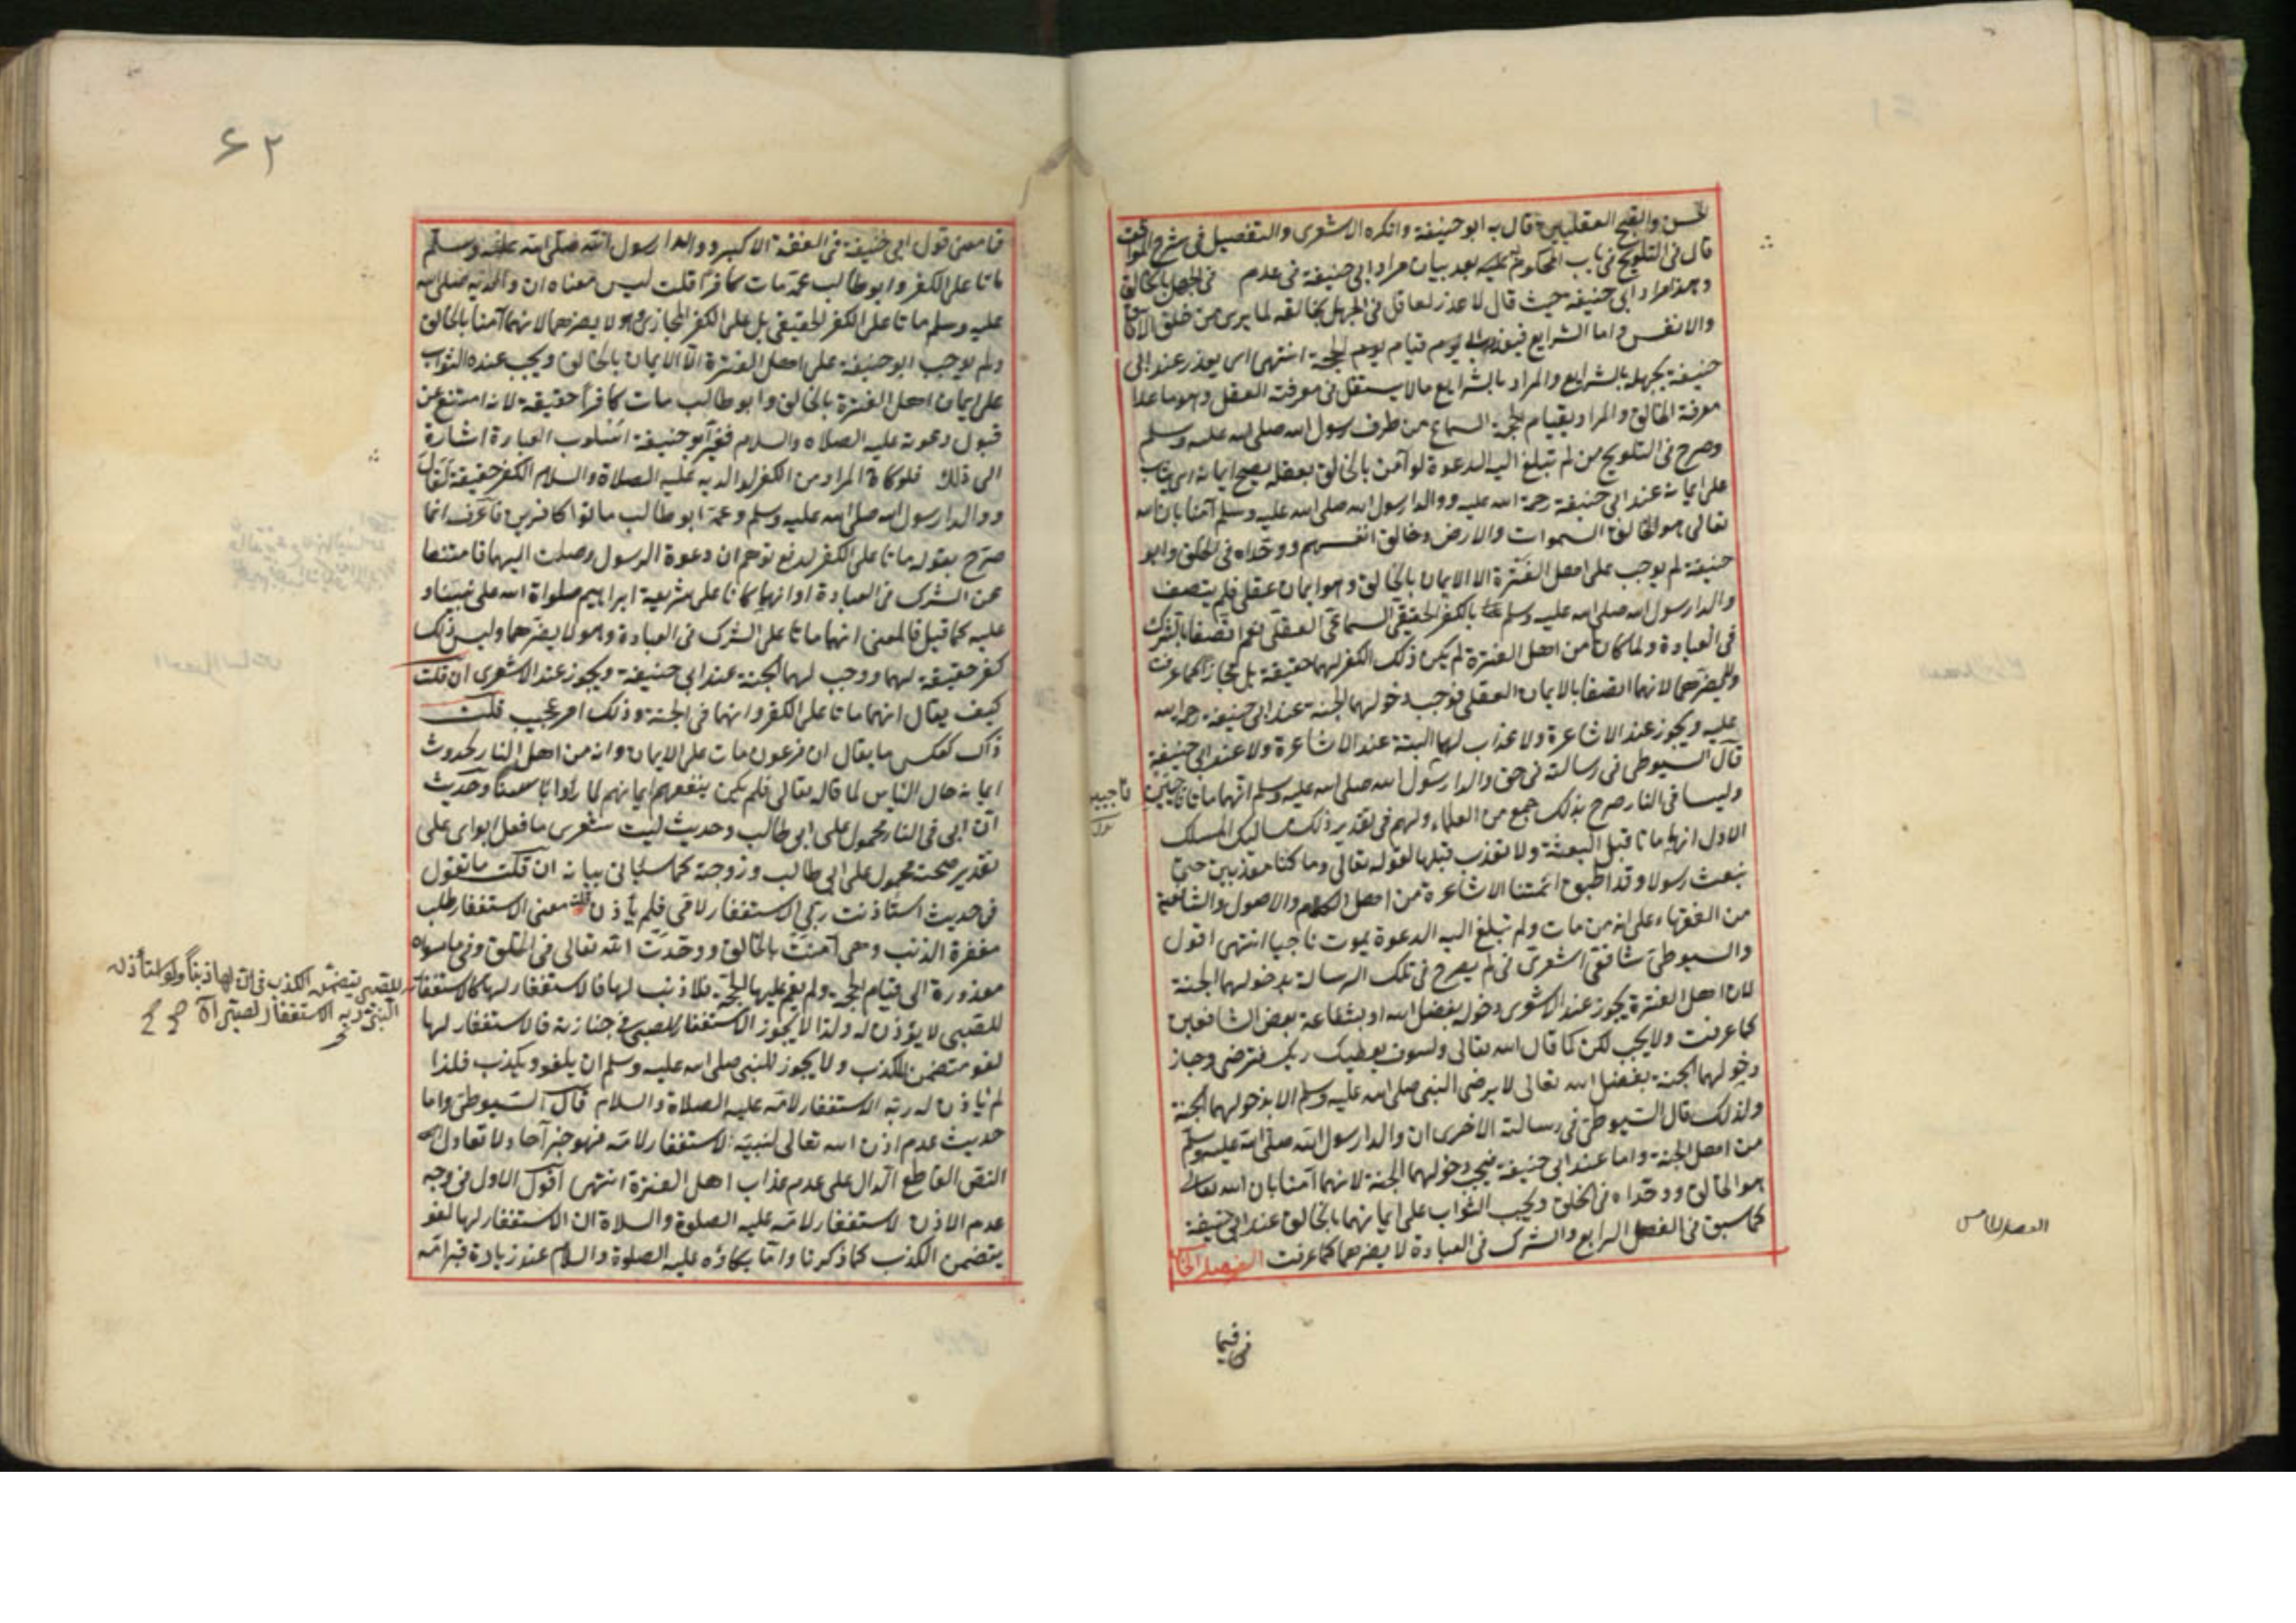 الحسن والقبح العقليين قال به ابو حنيفة وانكره الاشعرى والتفصيل فى شرح المواقف
قال فى التلويح فى باب المحكوم عليه بعد بيان مراد ابى حنيفة فى عدم فى الجهل بالخالق
وهو مراد ابى حنيفة حيث قال لا عذر لعاقل فى الجهل بخالقه لما يرى من خلق الآفاق
والانفس واما الشرايع فيعذر قيام الحجة انتهى اى يعذر عند ابى
حنيفة بجهله بالشرايع والمراد بالشرايع مالا يستقل فى معرفته العقل وهو ما عدا
معرفة الخالق والمراد بقيام الحجة السماع من طرف رسول الله صلى الله عليه وسلم
وصرح فى التلويح من لم تبلغ اليه الدعوة لو آمن بالخالق بعقله يصح ايمانه اى يثاب
على ايمانه عند ابى حنيفة رحمة الله عليه ووالدا رسول الله صلى الله عليه وسلم آمنا بان الله
تعالى هو الخالق السموات والارض وخالق انفسهم ووحداه فى الخلق وابو
حنيفة لم يوجب على اهل الفترة الا الايمان بالخالق وهو ايمان عقلى فلم يتصف
والدا رسول الله صلى الله عليه وسلم بالكفر الحقيقى السماعى العقلى نعم اتصفا بالشرك
فى العبادة ولما كانا من اهل الفترة لم يكن ذلك الكفر لهما حقيقة بل مجازا كما عرفت
ولا يضرهما لانهما اتصفا بالايمان العقلى فوجب دخولهما الجنة عند ابى حنيفة رحمه الله
عليه ويجوز عند الاشاعرة ولا عذاب لهما البتة عند الاشاعرة ولا عند ابى حنيفة
قال السيوطى فى رسالته فى حق والدا رسول الله صلى الله عليه وسلم انهما ماتا ناجيين
وليسا فى النار صرح بذلك جمع من العلماء ولهم فى تقدير ذلك مسالك المسلك
الاول انهما ماتا قبل البعثة ولا تعذب قبلها لقوله تعالى وما كنا معذبين حتى
نبعث رسولا وقد اطبق ائمتنا الاشاعرة من اهل الكلام والاصول والشافعية
من الفقهاء على انه من مات ولم تبلغ اليه الدعوة يموت ناجيا انتهى اقول
والسيوطى شافعى اشعرى لم يصرح فى تلك الرسالة بدخولهما الجنة
لان اهل الفترة يجوز عند الاشعرى دخوله بفضل الله او بشفاعة بعض الشافعين
كما عرفت ولا يجب لكن كما قال الله تعالى ولسوف يعطيك ربك فترضى وجاز
دخولهما الجنة بفضل الله تعالى لا يرضى النبى صلى الله عليه وسلم الا بدخولهما الجنة
ولذلك قال السيوطى فى رسالته الاخرى ان والدا رسول الله صلى الله عليه وسلم
من اهل الجنة واما عند ابى حنيفة فيجب دخولهما الجنة لانهما آمنا بان الله تعالى
هو الخالق ووحداه فى الخلق ويجب الثواب على ايمانهما بالخالق عند ابى حنيفة
كما سبق فى الفصل الرابع والشرك فى العبادة لا يضرهما كما عرفت الفصل الخا
الفصل الخامس
فيما
۶۲
فما معنى قول ابى حنيفة فى الفقه الاكبر ووالدا رسول الله صلى الله عليه وسلم
ماتا على الكفر وابو طالب عمه مات كافرا قلت ليس معناه ان والديه صلى الله
عليه وسلم ماتا على الكفر الحقيقى بل على الكفر المجازى وهو لا يضرهما لانهما آمنا بالخالق
ولم يوجب ابو حنيفة على اهل الفترة الا الايمان بالخالق ويجب عنده الثواب
على ايمان اهل الفترة بالخالق وابو طالب مات كافرا حقيقة لانه امتنع عن
قبول دعوته عليه الصلاة والسلام فغير ابو حنيفة اسلوب العبارة اشارة
الى ذلك فلو كان المراد من الكفر لوالديه عليه الصلاة والسلام الكفر حقيقة لقال
ووالدا رسول الله صلى الله عليه وسلم وعمه ابو طالب ماتوا كافرين فاعرف انما
صرح بقوله ماتا على الكفر لدفع توهم ان دعوة الرسول وصلت اليهما فامتنعا
عن الشرك فى العبادة او انهما كانا على شريعة ابراهيم صلواة الله على نبينا و
عليه كما قيل فالمعنى انهما ماتا على الشرك فى العبادة وهو لا يضرهما وليس ذلك
كفر حقيقة لهما ووجب لهما الجنة عند ابى حنيفة ويجوز عند الاشعرى ان قلت
كيف يقال انهما ماتا على الكفر وانهما فى الجنة وذلك امر عجيب قلت
ذاك كعكس ما يقال ان فرعون مات على الايمان وانه من اهل النار لحدوث
ايمانه حال الياس لما قاله تعالى فلم يكن ينفعهم ايمانهم لما رأوا باسنا وحديث
ان ابى فى النار محمول على ابى طالب وحديث ليت شعرى ما فعل ابواى على
تقدير صحته محمول على ابى طالب وزوجته كما سيأتى بيانه ان قلت ما تقول
فى حديث استأذنت ربى الاستغفار لامى فلم يأذن قلت معنى الاستغفار طلب
مغفرة الذنب وهى آمنت بالخالق ووحدت الله تعالى فى الخلق وفى ما سواه
معذورة الى قيام الحجة ولم يقم عليها الحجة فلا ذنب لها فالاستغفار لها كالاستغفار
للصبى لا يؤذن له ولذا لا يجوز الاستغفار للصبى فى جنازته فالاستغفار لها
لغو متضمن للكذب ولا يجوز للنبى صلى الله عليه وسلم ان يلغو ويكذب فلذا
لم ياذن له ربه الاستغفار لامه عليه الصلاة والسلام قال السيوطى واما
حديث عدم اذن الله تعالى لنبيه الاستغفار لامه فهو خبر آحاد لا تعادل
النص القاطع الدال على عدم عذاب اهل الفترة انتهى اقول الاول فى وجه
عدم الاذن لاستغفار لامه عليه الصلوة والسلام ان الاستغفار لها لغو
يتضمن الكذب كما ذكرنا واما بكاؤه عليه الصلوة والسلام عند زيادة قبر امه
للصبى يتضمن الكذب فان لها ذنبا ولو استأذن
النبى ربه الاستغفار لصبى